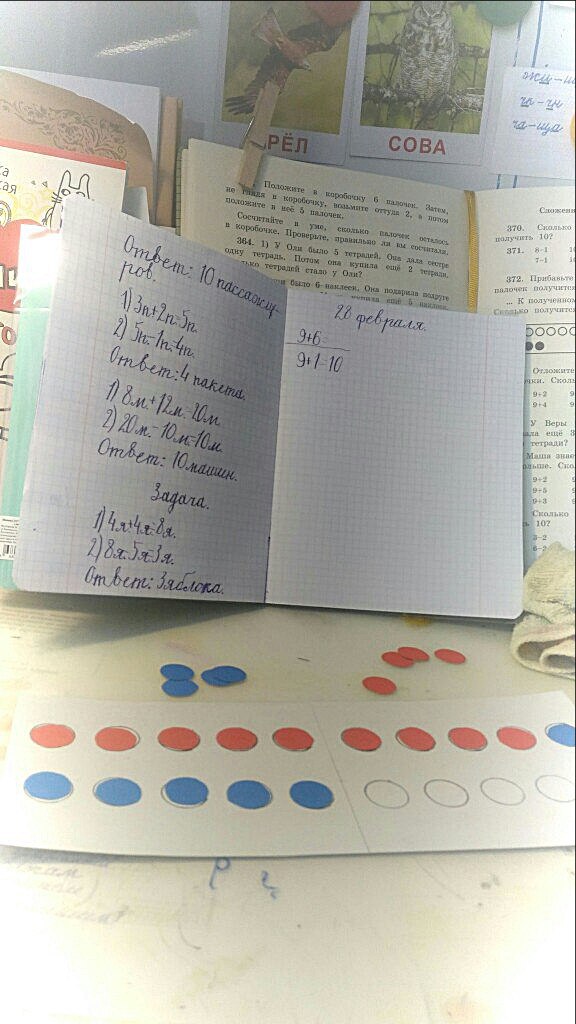 РЁЛ
СОВА
жи-ш
чк-чн
ча-ща
Положите в коробочку 6 палочек. Затем,
не глядя в коробочку, возьмите оттуда 2, а потом
положите в неё 5 палочек.
Сосчитайте в уме, сколько палочек осталось
в коробочке. Проверьте, правильно ли вы сосчитали.
364. 1) У Оли было 5 тетрадей. Она дала сестре
одну тетрадь. Потом она купила ещё 2 тетради.
Сколько тетрадей стало у Оли?
было 6 наклеек. Она подарила подруге
купила ещё 5 наклеек
Сложени
370. Сколько
получить 10?
371. 8-1
7-1
372. Прибавьте
палочек получится
... К полученном
Сколько получится
Отложите
9+2
9+4
У Веры
ещё 3
тетради?
Маша знае
больше. Скол
9+2
9+5
9+3
Сколько
10?
3-2
6-2
Ответ: 10 пассажи-
ров.
1) 3п+2п=5п.
2) 5п-1п=4п.
Ответ: 4 пакета.
1) 8м.+12м.=20м.
2) 20м.-10м.=10м.
Ответ: 10 машин.
Задача.
1) 4я+4я=8я.
2) 8я-5я=3я.
Ответ: 3 яблока.
28 февраля.
9+6=
9+1=10